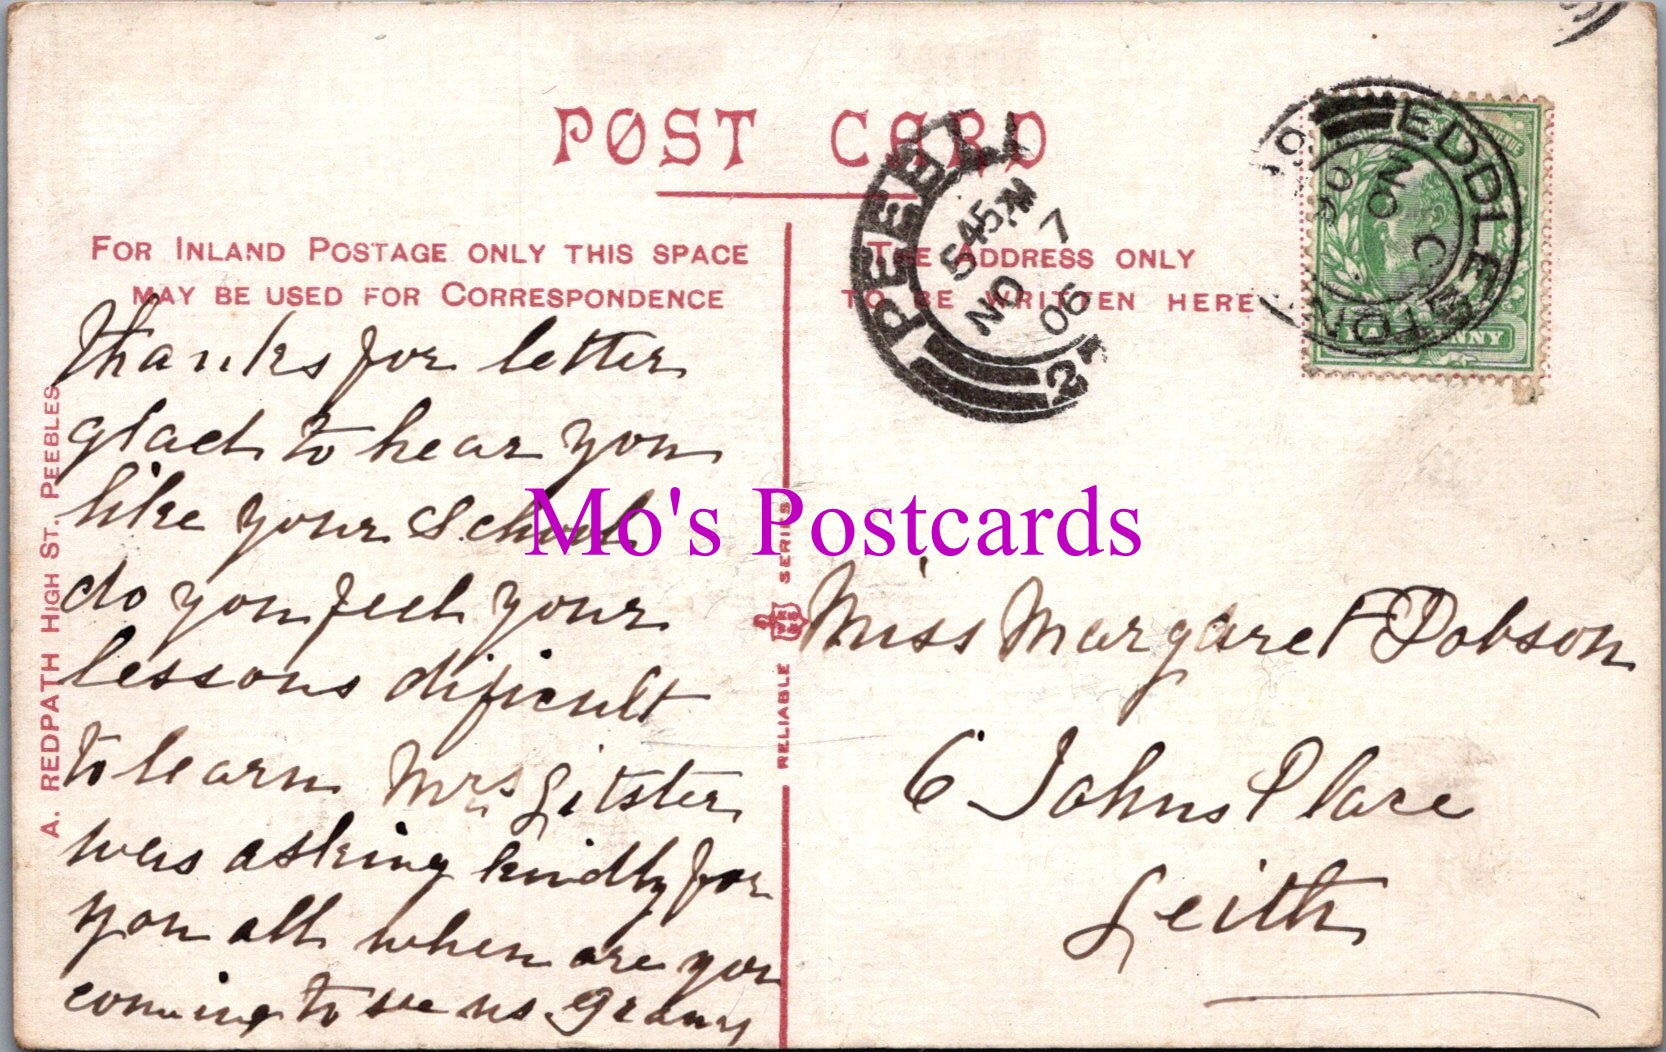 POST CARD
FOR INLAND POSTAGE ONLY THIS SPACE
MAY BE USED FOR CORRESPONDENCE
THE ADDRESS ONLY
TO BE WRITTEN HERE
PEEBL
545 PM
NO 7
06
27
EDDLESTON
NO
06
HALFPENNY
Thanks for letter
glad to hear you
like your School
do you feel your
lessons dificult
to learn Mrs Litster
was asking kindly for
you all when are you
coming to see us Granny
Miss Margaret Dobson
6 Johns Place
Leith
A. REDPATH HIGH ST. PEEBLES
RELIABLE SERIES
Mo's Postcards